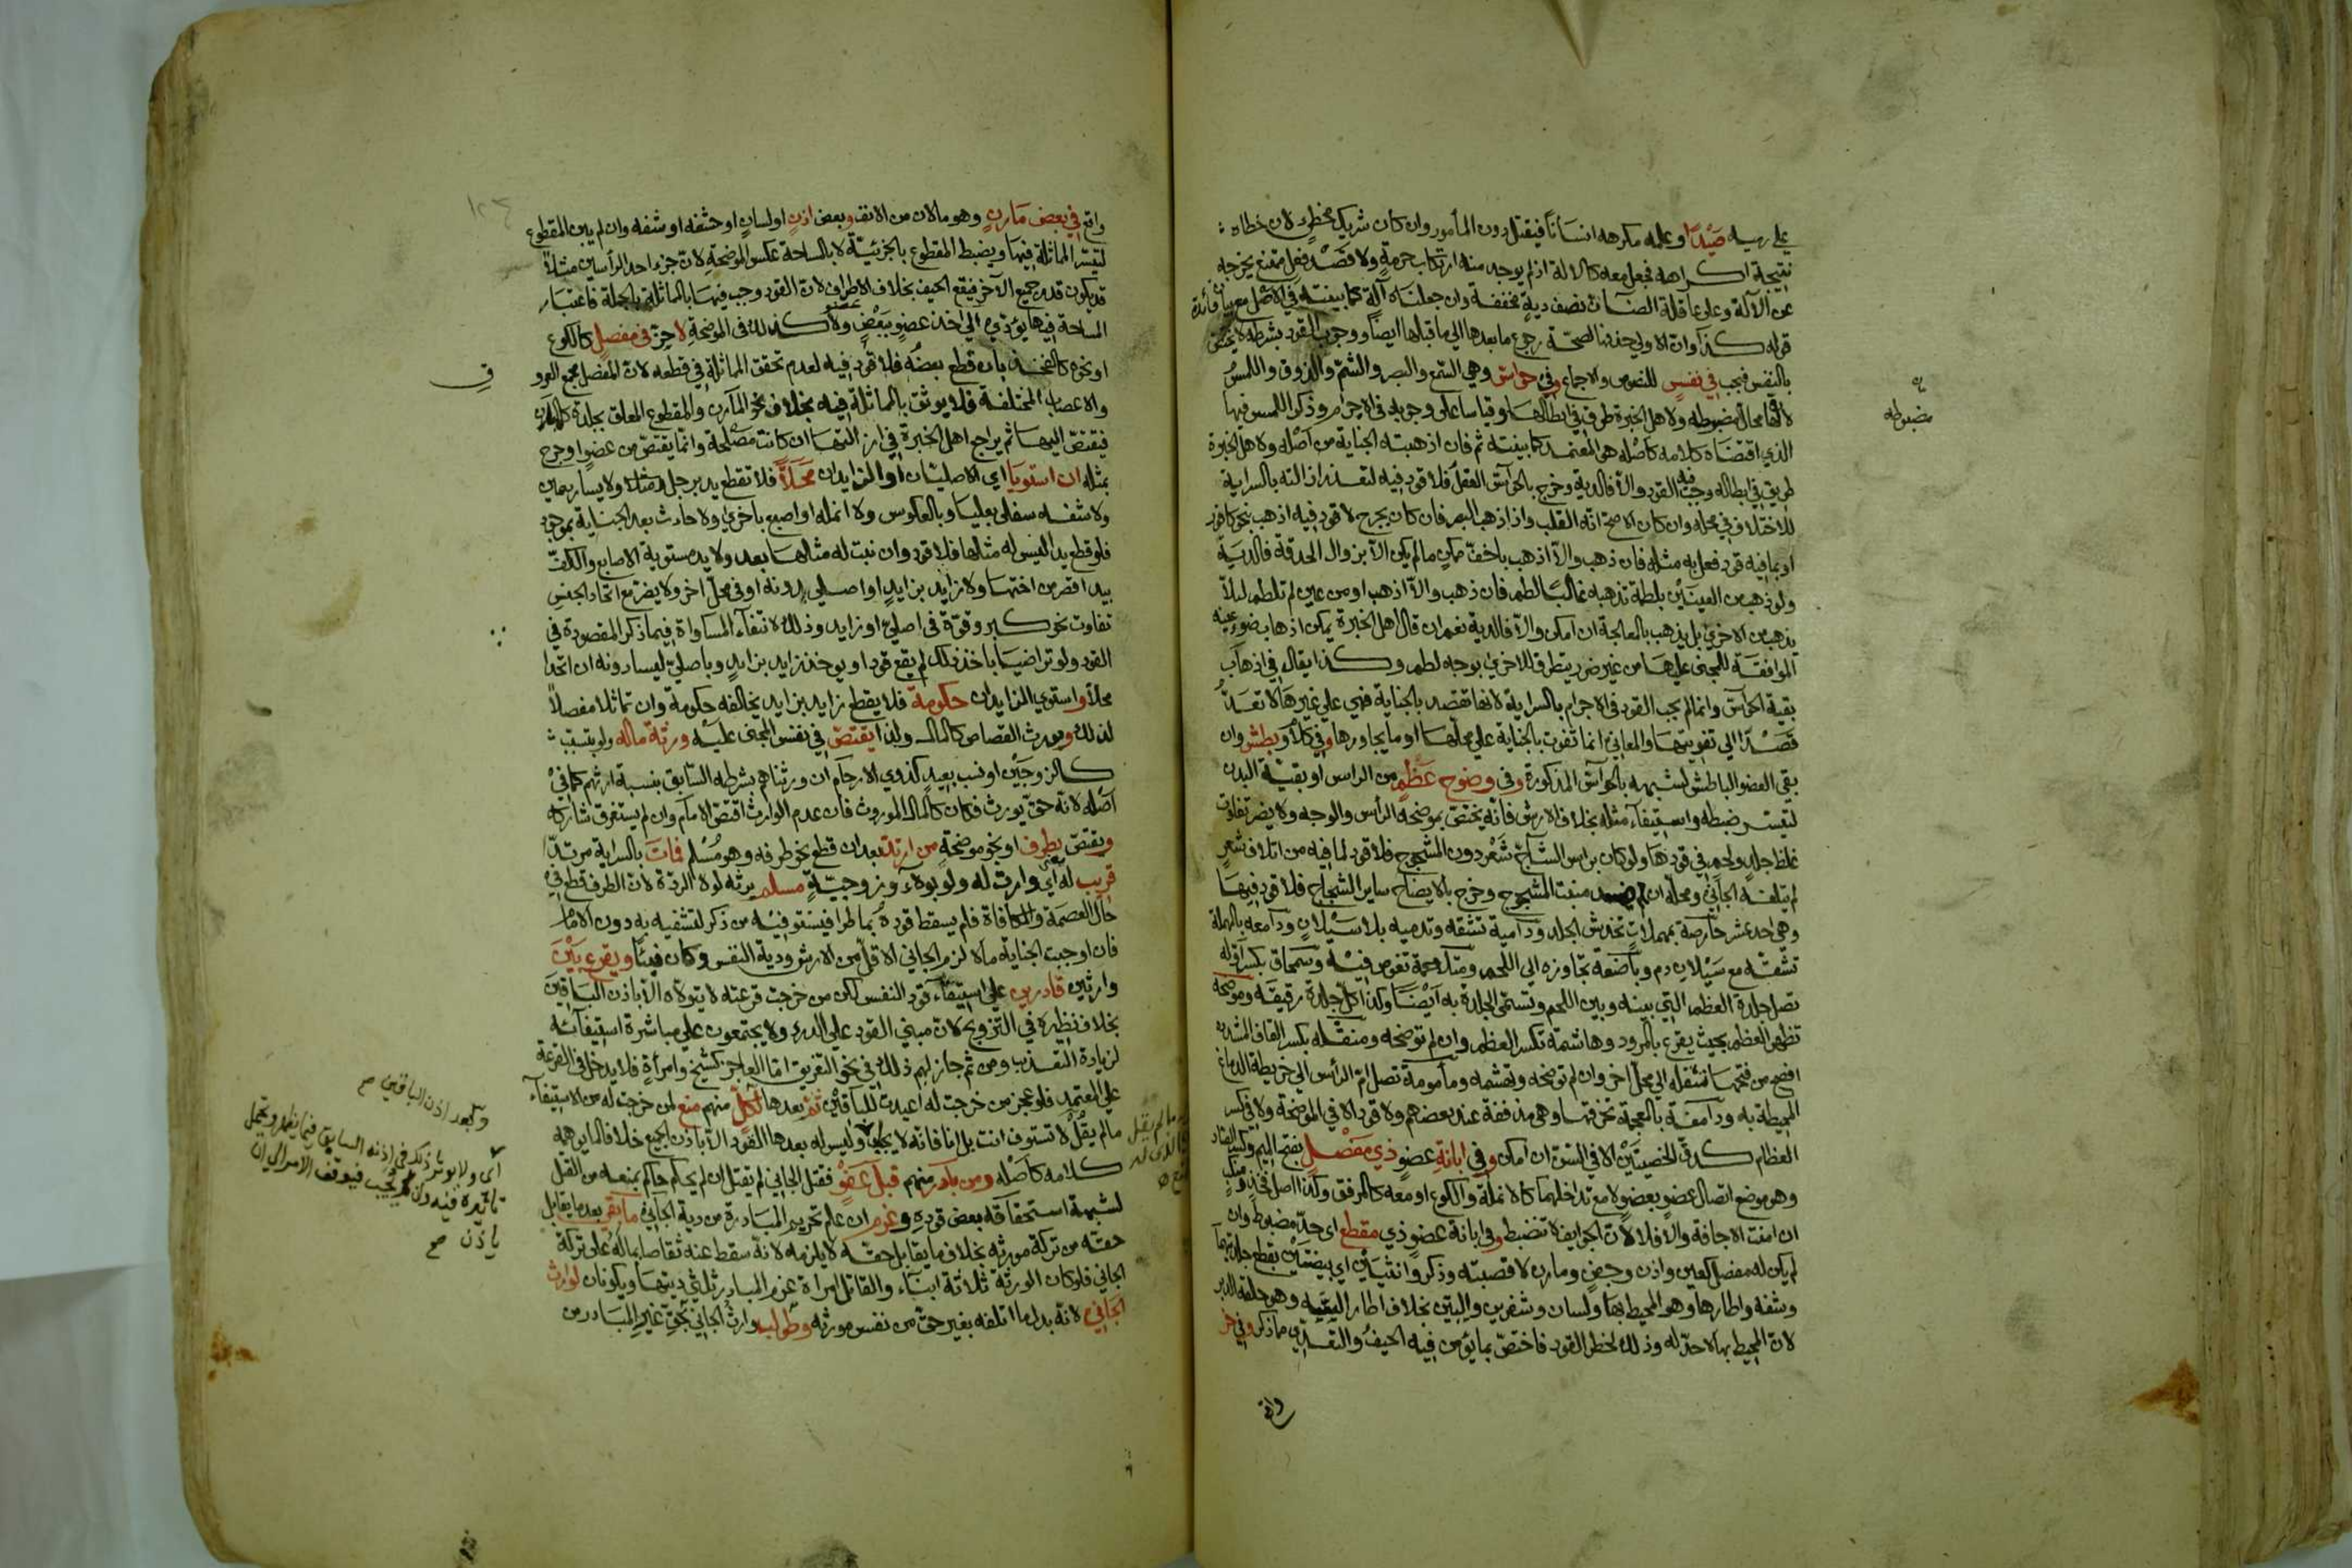 على رميه صيدا وعلمه مكرهه انسانا فيقتل دون المأمور وان كان شريك مخطئ لان خطاه
نتيجة اكراهه فجعل معه كالالة اذ لم يوجد منه ارتكاب حرمة ولا قصد فعل ممتنع يخرجه
عن الآلة وعلى عاقلة الضآن نصف دية مخففة وان جعلناه آلة كما بينته في الاصل مع بيان فائدة
قوله كذا وان الاولى حذفها لصحة رجوع ما بعدها الى ما قبلها ايضا ووجوب القود بشرطه لا يختص
بالنفس فيجب في نفس للنصوص والاجماع وفي حواس وهي السمع والبصر والشم والذوق واللمس
لان لها محال مضبوطه ولاهل الخبرة طرق في ابطالها وقياسا على وجوبه في الاجرام وذكر اللمس فيها
الذي اقتضاه كلامه كاصله هو المعتمد كما بينته ثم فان اذهبته الجناية من اصله ولاهل الخبرة
طريق في ابطاله وجب فيه القود والا فالدية وخرج بالحواس العقل فلا قود فيه لتعذر ازالته بالسراية
للاختلاف في محله وان كان الاصح انه القلب واذا ذهب البصر فان كان بجرح لا قود فيه اذهب بنحو كافور
او بما فيه قود فعل به مثله فان ذهب والا اذهب باخف ممكن ما لم يكن الا بزوال الحدقة فالدية
ولو ذهب من العينين بلطمة تذهبه غالبا لطم فان ذهب والا اذهب او من عين لم تلطم ليلا
يذهب من الاخرى بل يذهب بالمعالجة ان امكن والا فالدية نعم ان قال اهل الخبرة يمكن اذهاب ضوء عينه
الموافقة للمجنى عليها من غير ضرر يتطرق للاخرى بوجه لطم وكذا يقال في اذهاب
بقية الحواس وانما لم يجب القود في الاجرام بالسراية لانها تقصد بالجناية فهي على غيرها لا تعد
قصدا الى تفويتها والمعاني انما تفوت بالجناية على محلها او ما يجاورها وفي كلأ وبطش وان
بقي العضو الباطش لشبهه بالحواس المذكورة وفي وضوح عظم من الراس او بقية البدن
لتيسر ضبطه واستيفاء مثله بخلاف الارش فانه يختص بموضحة الرأس والوجه ولا يضر تفاوت
غلظ جلد ولحم في قودها ولو كان براس الشاج شعر دون المشجوج فلا قود لما فيه من اتلاف شعر
لم يتلفه الجاني ومحله ان لم يفسد منبت المشجوج وخرج بالايضاح ساير الشجاج فلا قود فيها
وهي احد عشر حارصة بمهملات تخدش الجلد ودامية تشقه وتدميه بلا سيلان ودامعه بالمهملة
تشقه مع سيلان دم وباضعة تجاوزه الى اللحم ومتلاحمة تغوص فيه وسمحاق بكسر اوله
تصل جلدة العظم التي بينه وبين اللحم وتسمى الجلدة به ايضا وكذا كل جلدة رقيقة وموضحة
تظهر العظم بحيث يقرع بالمرود وهاشمة تكسر العظم وان لم توضحه ومنقله بكسر القاف المشددة
افصح من فتحها تنقله الى محل اخر وان لم توضحه وتهشمه ومأمومة تصل ام الرأس الى خريطة الدماغ
المحيطة به ودامغة بالمعجمة تخرقها وهي مذففة عند بعضهم ولا قود الا في الموضحة ولا في كسر
العظام كدق الخصيتين الا في السن ان امكن وفي ابانة عضو ذي مفصل بفتح الميم وكسر الصاد
وهو موضع اتصال عضو بعضو لا مع تداخلهما كالانملة والكوع او معه كالمرفق وكذا اصل فخذ ومنكب
ان امنت الاجافة والا فلا لان الجوايف لا تنضبط وفي ابانة عضو ذي مقطع اي حد مضبوط وان
لم يكن له مفصل كعين واذن وجفن ومارن لا قصبته وذكر وانثيين اي بيضتين بقطع جلدتهما
وشفة واطارها وهو المحيط بها ولسان وشفرين واليين بخلاف اطار السه وهو حلقة الدبر
لان المحيط بها لا حد له وذلك لخطر القود فاختص بما يؤمن فيه الحيف والتعدي مما ذكر وفي خر
واتي
مضبوطه
واتي في بعض مارن وهو ما لان من الانف وبعض اذن او لسان او حشفه او شفه وان لم يبن المقطوع
لتيسر المماثلة فيها ويضبط المقطوع بالجزئية لا بالمساحة عكس الموضحة لان جزء احد الرأسين مثلا
قد يكون قدر جميع الآخر فيقع الحيف بخلاف الاطراف لان القود وجب فيها بالمماثلة بالجملة فاعتبار
المساحة فيها يؤدي الى اخذ عضو ببعض ولا كذلك في الموضحة لا حز في مفصل كالكوع
او نحوه كالفخذ بان قطع بعضه فلا قود فيه لعدم تحقق المماثلة في قطعه لان المفصل مجمع العروق
والاعصاب المختلفة فلا يوثق بالمماثلة فيه بخلاف نحو المارن والمقطوع المعلق بجلدة كالمبان
فيقتص اليها ثم يراجع اهل الخبرة في ازالتها ان كانت مصلحة وانما يقتص من عضو او جرح
بمثله ان استويا اي الاصليان او الزايدان محلا فلا تقطع يد برجل مثلا ولا يسار بيمين
ولا شفه سفلى بعليا وبالعكوس ولا انملة او اصبع باخرى ولا حادث بعد الجناية بموجود
فلو قطع يدا ليس له مثلها فلا قود وان نبت له مثلها بعد ولا يد مستوية الاصابع والكف
بيد اقصر من اختها ولا زايد بزايد او اصلي دونه او في محل اخر ولا يضر مع اتحاد الجنس
تفاوت نحو كبر وقوة في اصلي او زايد وذلك لانتفاء المساواة فيما ذكر المقصودة في
القود ولو تراضيا باخذ ذلك لم يقع قودا ويوخذ زايد بزايد وباصلي ليسا دونه ان اتحدا
محلا واستوى الزايدان حكومة فلا يقطع زايد بزايد يخالفه حكومة وان تماثلا مفصلا
لذلك ويورث القصاص كالمال ولذا يقتص في نفس المجنى عليه ورثة ماله ولو بسبب
كالزوجين او نسب بعيد كذوي الارحام ان ورثناهم بشرطه السابق بنسبة ارثهم كما في
اصله لانه حق يورث فكان كالمال الموروث فان عدم الوارث اقتص الامام وان لم يستغرق شاركه
ويقتص بطرف او نحو موضحة من ارتد بعد ان قطع نحو طرفه وهو مسلم فمات بالسراية مرتدا
قريب له اي وارث له ولو بولاء وزوجية مسلم يرثه لولا الردة لان الطرف قطع في
حال العصمة والمكافاة فلم يسقط قوده بما طرا فيستوفيه من ذكر لتشفيه به دون الامام
فان اوجبت الجناية مالا لزم الجاني الاقل من الارش ودية النفس وكان فيئا ويقرع بين
وارثين قادرين على استيفاء قود النفس لكن من خرجت قرعته لا يتولاه الا باذن الباقين
بخلاف نظيره في التزويج لان مبنى القود على الدرء ولا يجتمعون على مباشرة استيفائه
لزيادة التعذيب ومن ثم جاز لهم ذلك في نحو التغريق اما العاجز كشيخ وامرأة فلا يدخل في القرعة
على المعتمد فلو عجز من خرجت له اعيدت للباقين ثم بعدها لكل منهم منع من خرجت له من الاستيفاء
ما لم يقل لا تستوف انت بل انا فانه لا يجاب وليس له بعدها القود الا باذن الجميع خلافا لما يوهمه
كلامه كاصله ومن بادر منهم قبل عفو فقتل الجاني لم يقتل ان لم يحكم حاكم بمنعه من القتل
لشبهة استحقاقه بعض قوده وغرم ان علم تحريم المبادرة من دية الجاني ما بقي بعد ما يقابل
حقه من تركة مورثه بخلاف ما يقابل حقه لا يلزمه لانه سقط عنه تقاصا بماله على تركة
الجاني فلو كان الورثة ثلاثة ابناء والقاتل امراة غرم المبادر ثلثي ديتها ويكونان لوارث
الجاني لانه بدل ما اتلفه بغير حق من نفس مورثه وطولب وارث الجاني بحق غير المبادر من
وبعد اذن الباقين صح
اي ولا يوثر ذلك في اذنه السابق فيما يظهر ويحتمل
تاثيره فيه وان لم يجب فيوقف الامر الى ان
ياذن صح